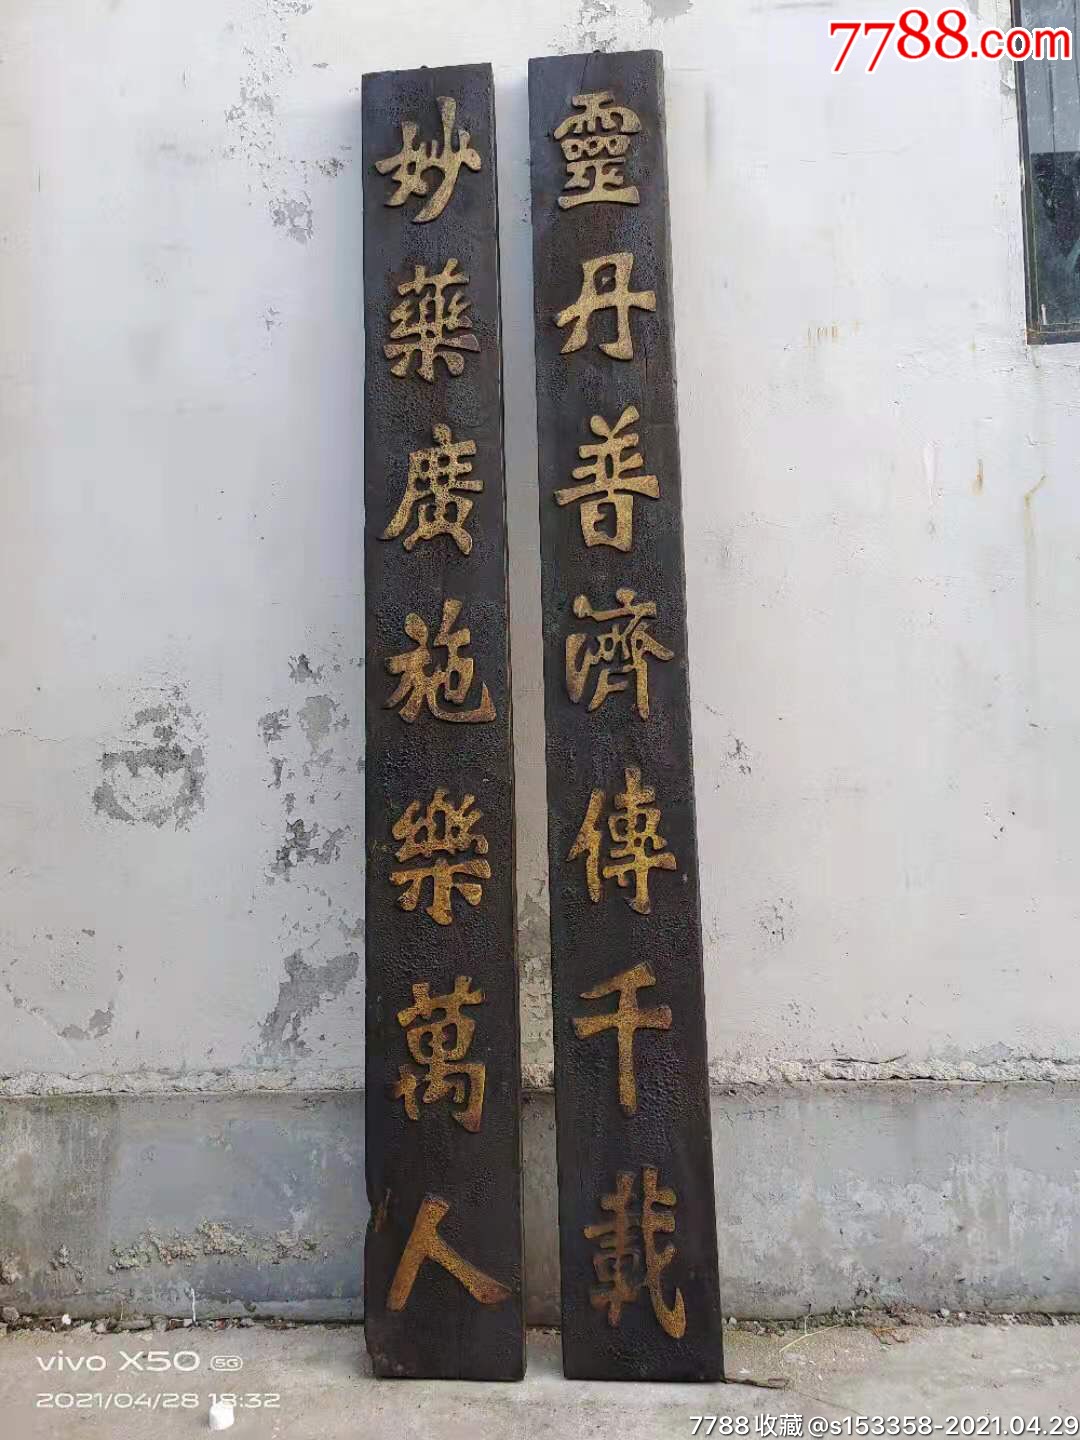 7788.com
靈丹普濟傳千載
妙藥廣施樂萬人
vivo X50 5G
2021/04/28 18:32
7788收藏@s153358-2021.04.29